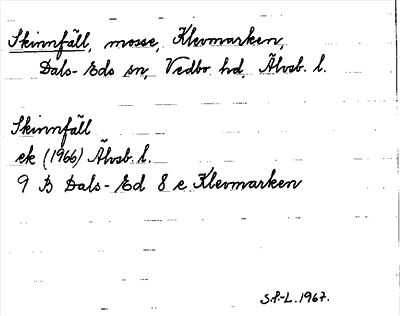 Skinnfäll, mosse, Klevmarken,
Dals-Eds sn, Vedbo hd, Älvsb. l.
Skinnfäll
ek (1966) Älvsb. l.
9 B Dals-Ed 8 e Klevmarken
S.P.-L. 1967.